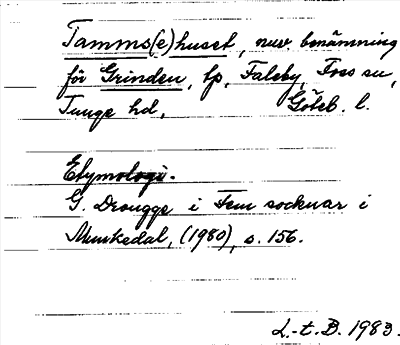 Tamms(e)huset, nuv. benämning
för Grinden, tp, Faleby, Foss sn,
Tunge hd, Göteb. l.
Etymologi.
G. Drougge i Fem socknar i
Munkedal, (1980), s. 156.
L.-t. B. 1983.